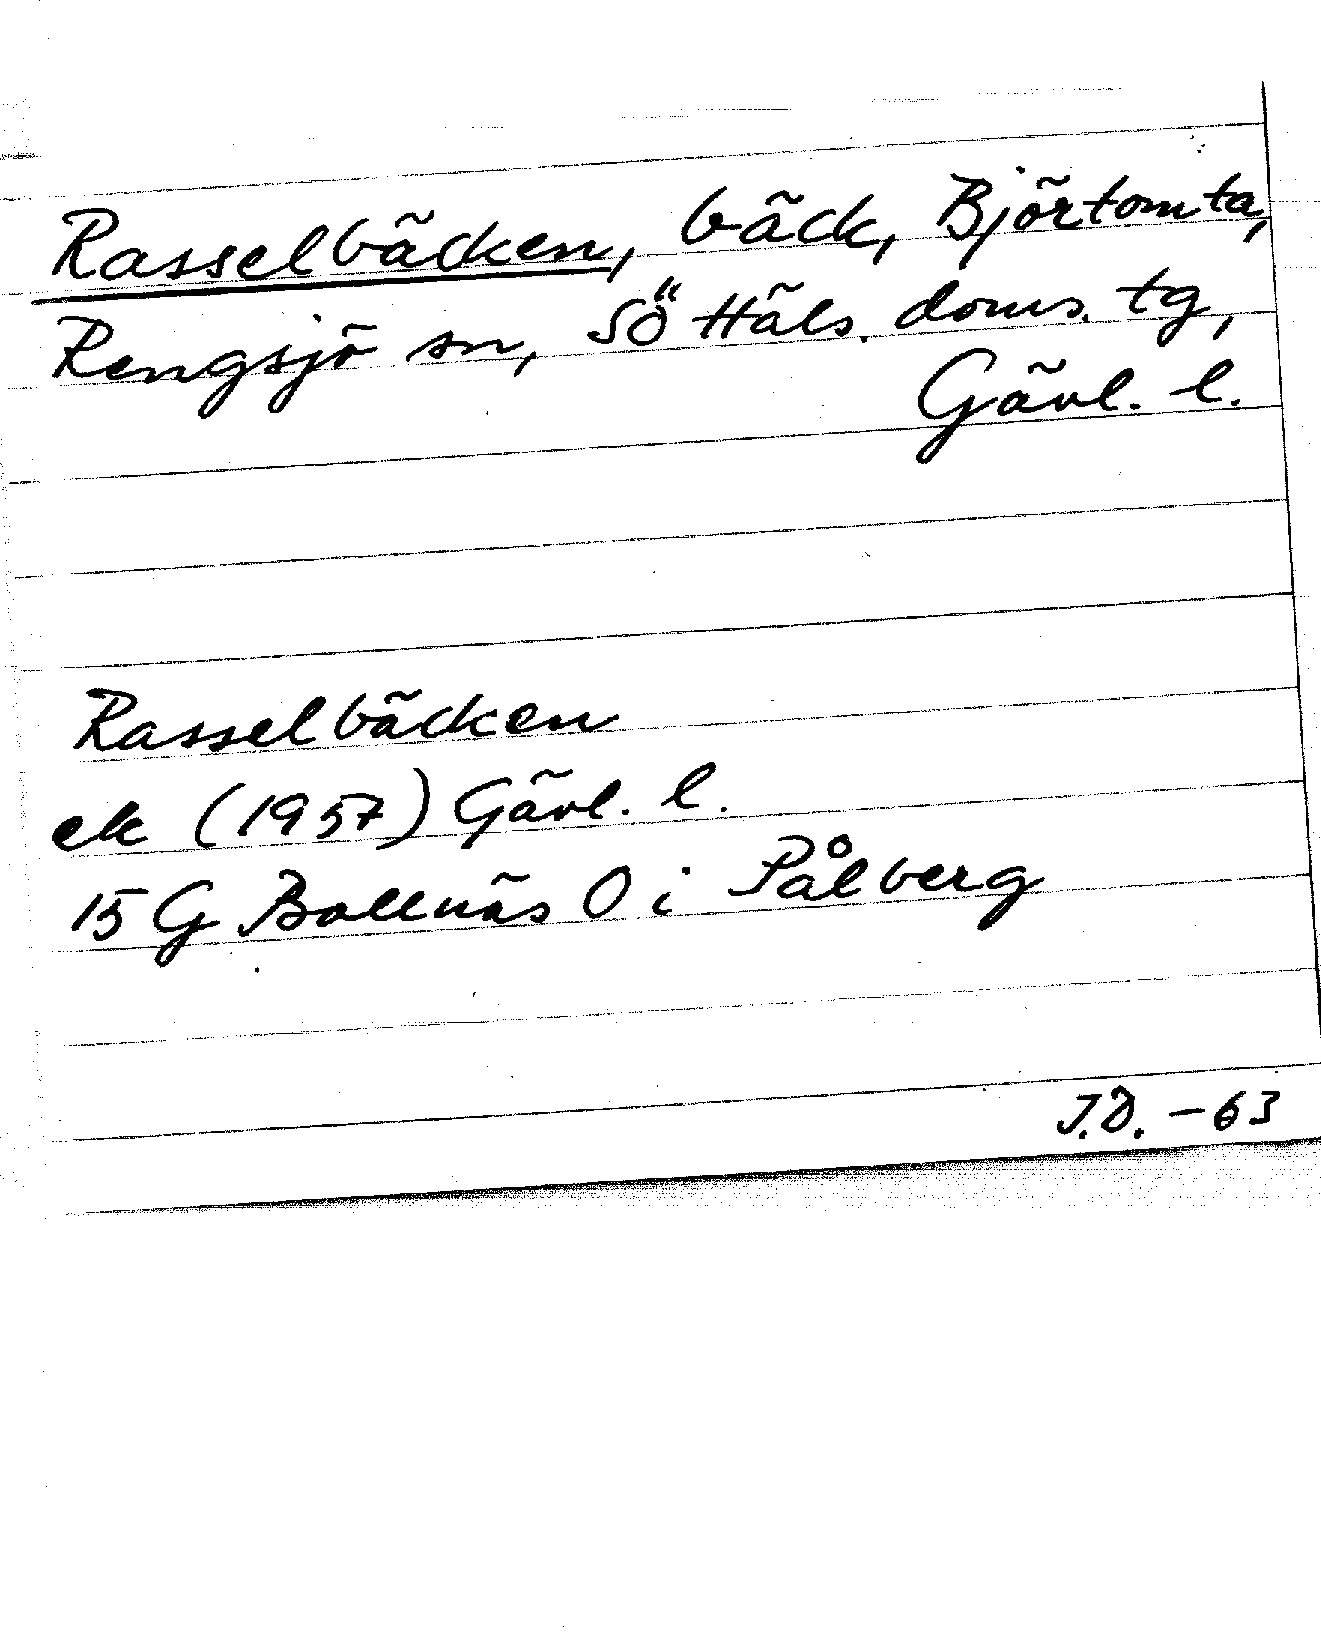 Rasselbäcken, bäck, Björtomta,
Rengsjö sn, SÖ Häls. doms. tg,
Gävl. l.
Rasselbäcken
ek (1957) Gävl. l.
15 G Bollnäs O i Pålberg
J.D. - 63